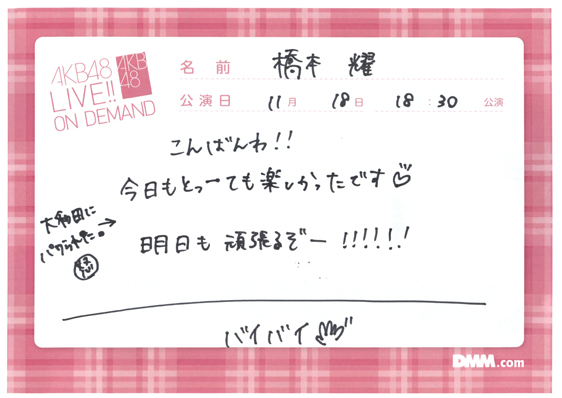 AKB48
LIVE!!
ON DEMAND
AKB
48
名 前 橋本 耀
公演日 11月 18日 18:30 公演
こんばんわ!!
今日もとっても楽しかったです♡
大和田に
パクられた。
→
明日も 頑張るぞー!!!!!!
バイバイ
DMM.com